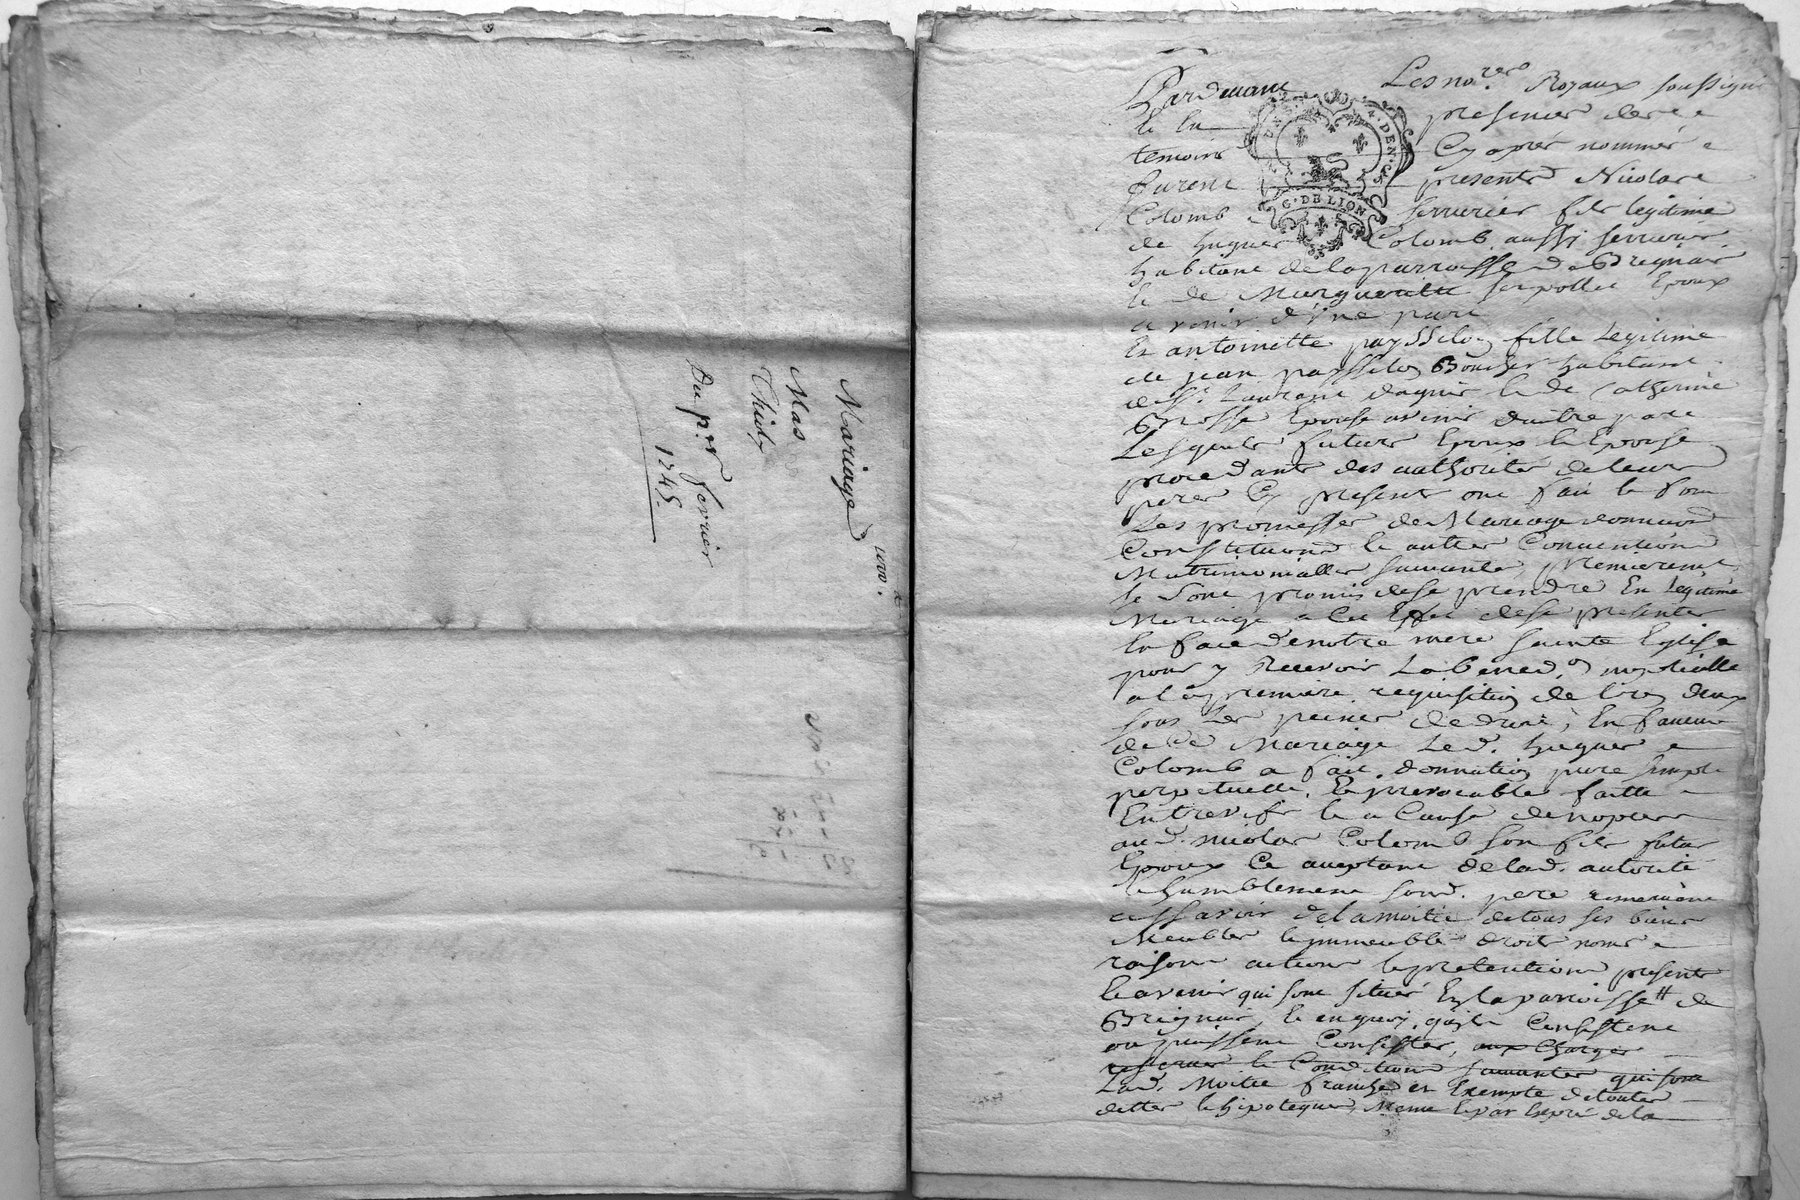 Mariage
Mas
Thiol
Du p.er fevrier
1745
1000.
Pardevant Les no.res Royaux soussignés
et les presence des
temoins Cy aprés nommés
furent presents Nicolas
Colomb serrurier fils legitime
de hugues Colomb aussi serrurier
habitant de la parroisse de Brignais
et de Margueritte Epoux
a venir d'une part
Et antoinette fille Legitime
de jean Boucher habitant
de S.t Laurent dagnis et de Catherine
Brosse Epouse avenir dautre part
Lesquels futurs Epoux et Epouse
procedants des authorites de leurs
peres Cy presents ont fait et font
Les promesses de Mariage donnations
Constitutions et autres Conventions
Matrimonialles suivantes, premierement
se sont promis de se prendre En Legitime
Mariage a cet Effet de se presenter
En face de notre mere sainte Eglise
pour y Recevoir La bened.on nuptialle
a la premiere requisition de l'un deux
sous Les peines de droit, En faveur
de Ce Mariage Led. hugues
Colomb a fait donnation pure simple
perpetuelle, et irrevocable faitte
Entrevifs et a Cause de nopces
aud. nicolas Colomb son fils futur
Epoux Ce acceptant de lad. autorité
et humblement sond. pere remerciant
assavoir de la moitié de tous ses biens
Meubles et immeubles droits noms
raisons actions et pretentions presents
et avenir qui sont situés En la parroisse de
Brignais et en quoy quils Consistent
ou puissent Consister, aux Charges
reserves et Conditions suivantes qui sont
Lad. Moitié franche et Exempte de toutes
dettes et hipoteques, Meme et par Exprés de la
G. DE LION